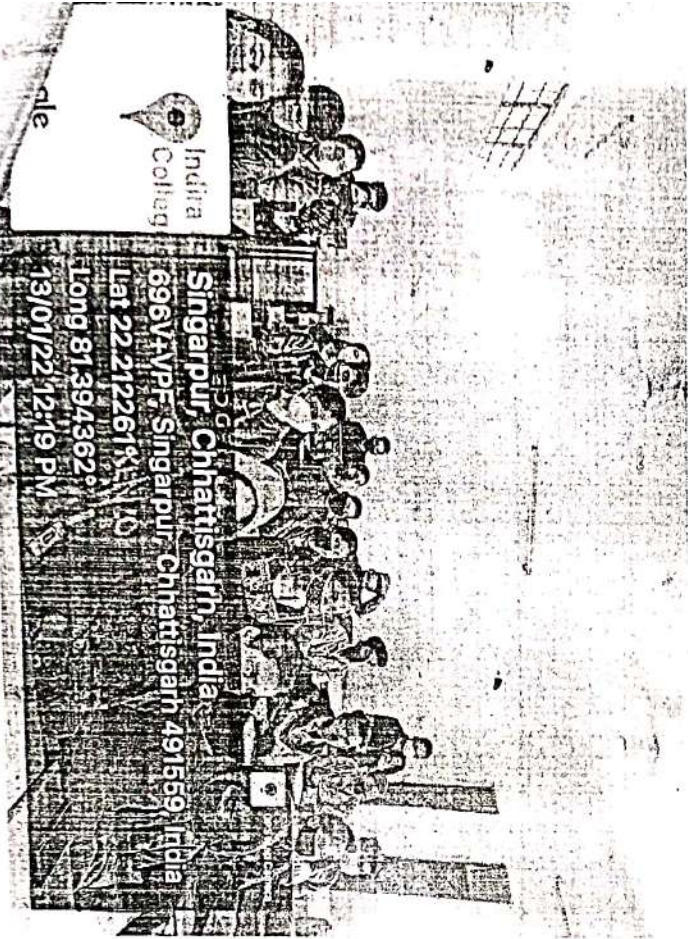 Indira
Colleg
gle
Singarpur, Chhattisgarh, India
696V+VPF, Singarpur, Chhattisgarh 491559, India
Lat 22.212261°
Long 81.394362°
13/01/22 12:19 PM